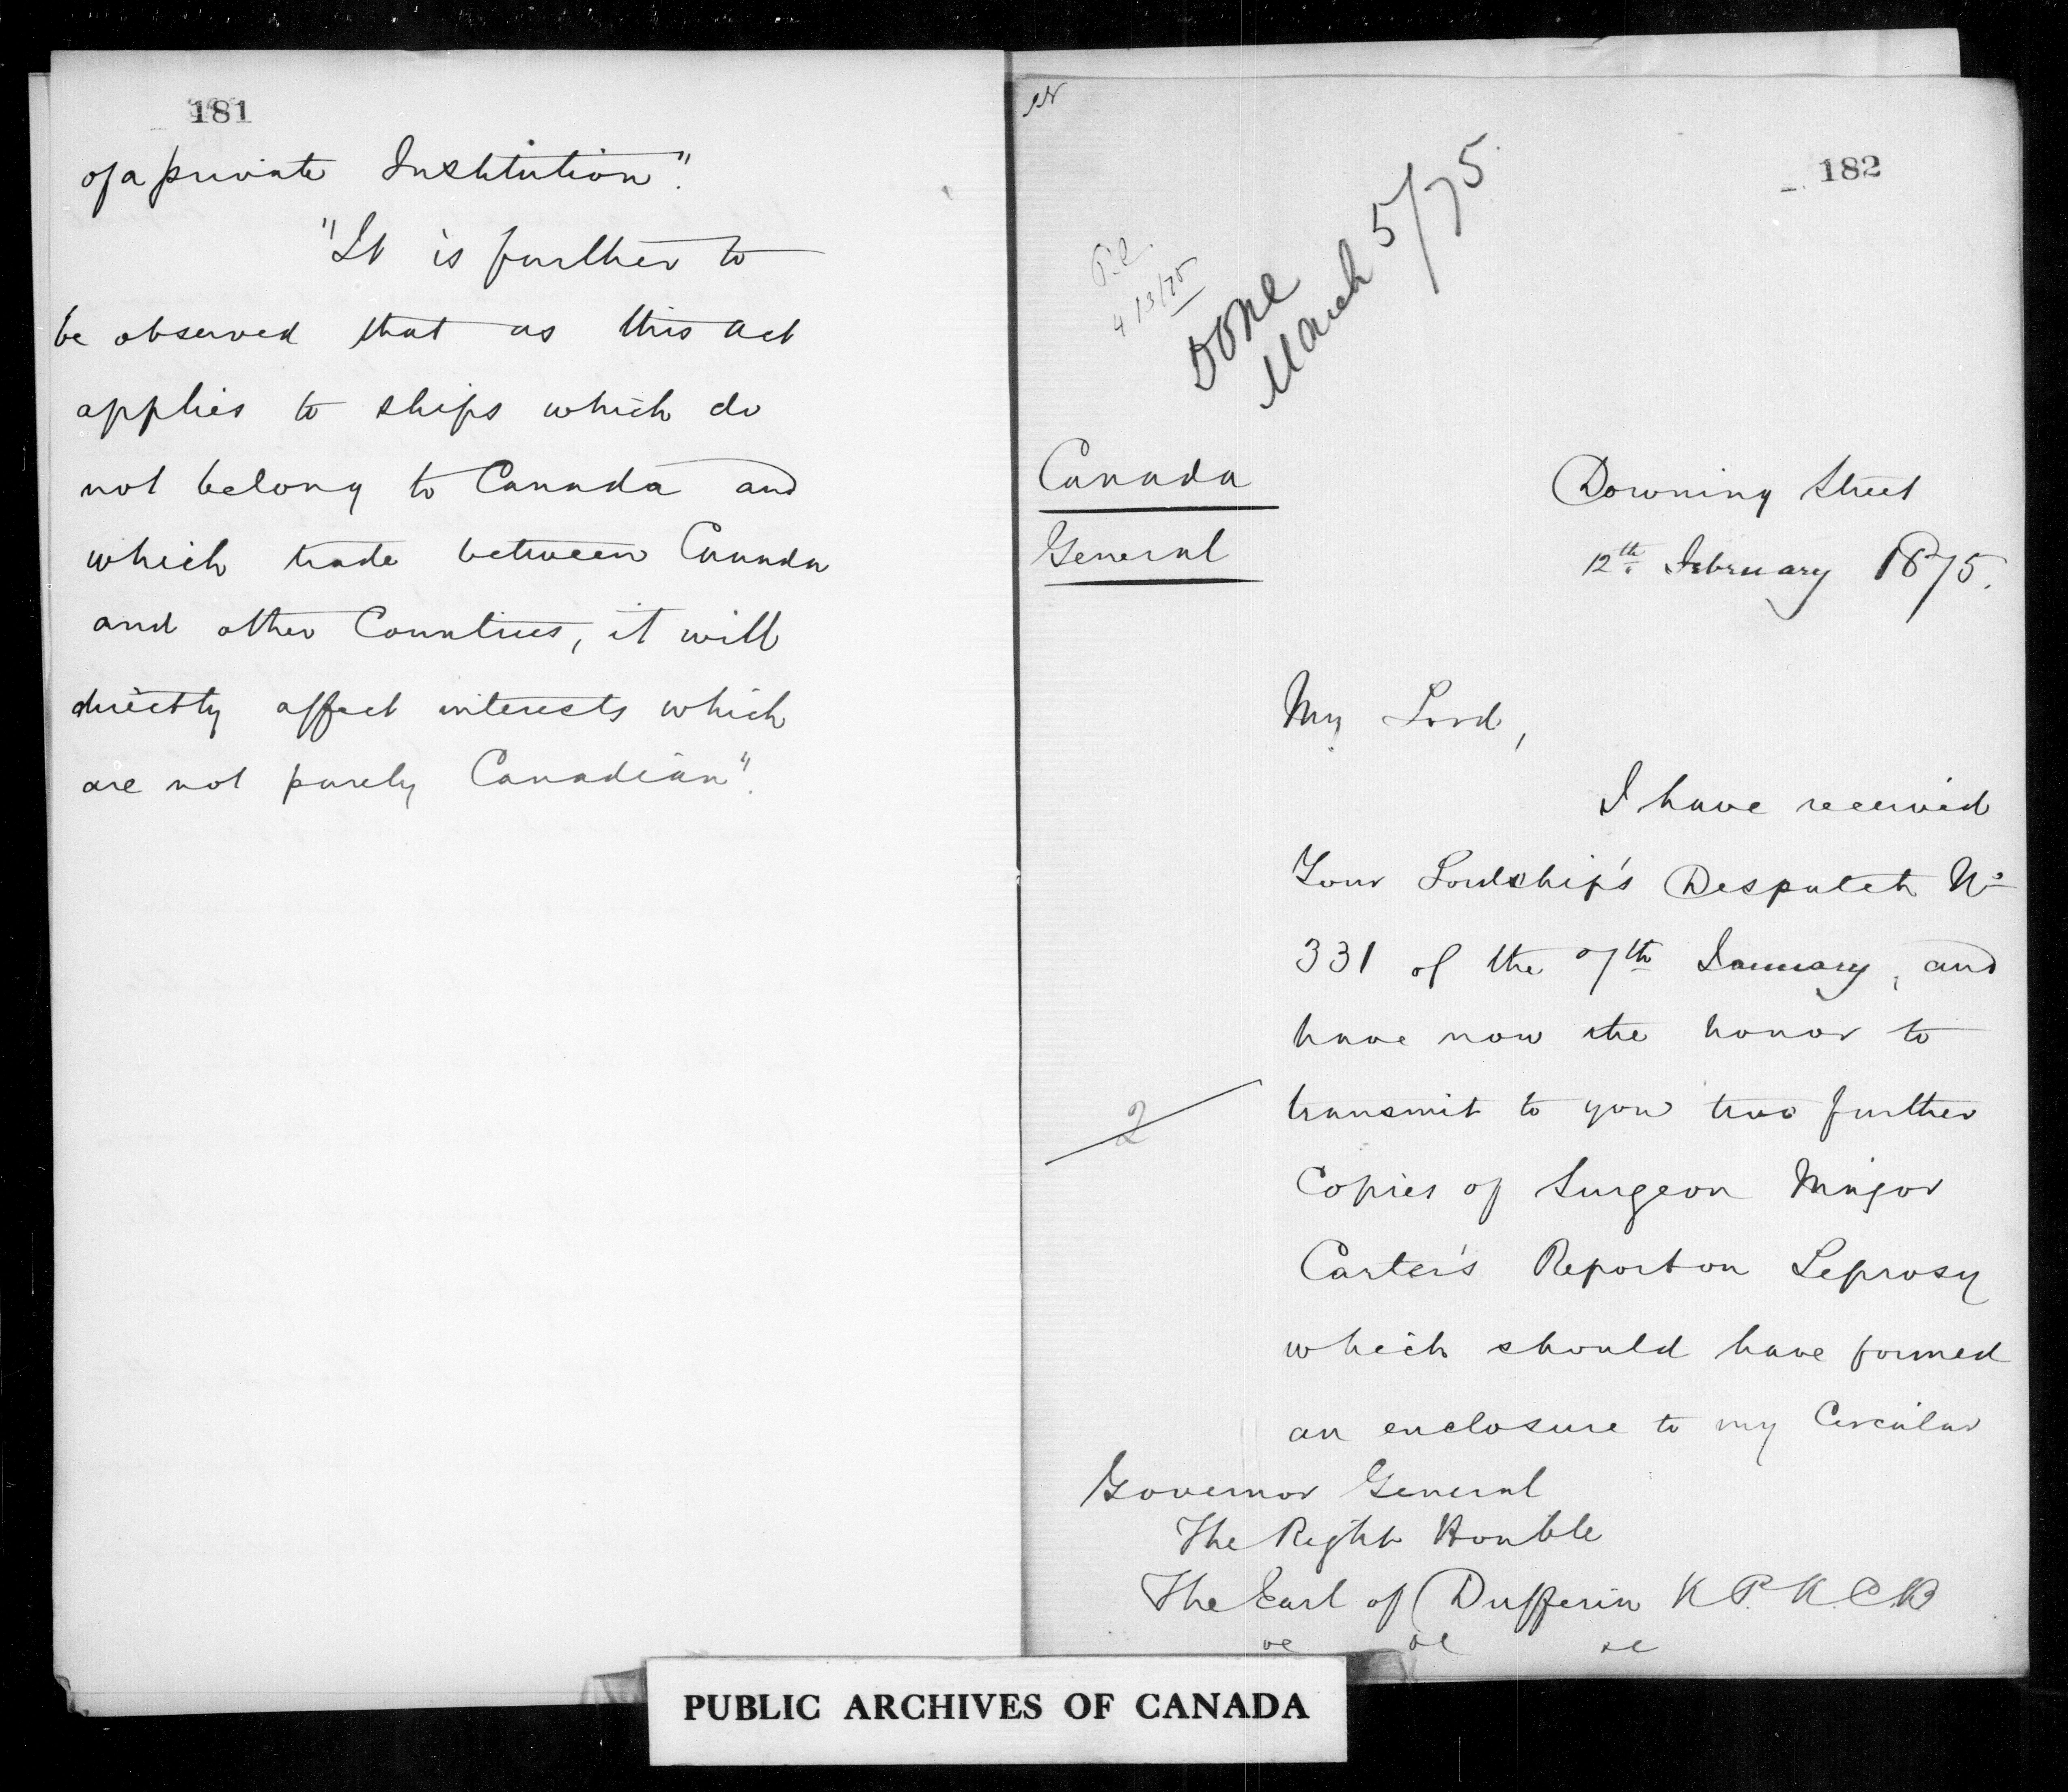 181
of a private Institution".
"It is further to
be observed that as this act
applies to ships which do
not belong to Canada and
which trade between Canada
and other Countries, it will
directly affect interests which
are not purely Canadian".
182
4/3/75
Done
March 5/75
Canada
General
Downing Street
12th February 1875.
My Lord,
I have received
Your Lordship's Despatch No
331 of the 7th January, and
have now the honor to
2
transmit to you two further
Copies of Surgeon Major
Carter's Report on Leprosy
which should have formed
an enclosure to my Circular
Governor General
The Right Honble
The Earl of Dufferin K.P. K.C.B
&c &c &c
PUBLIC ARCHIVES OF CANADA